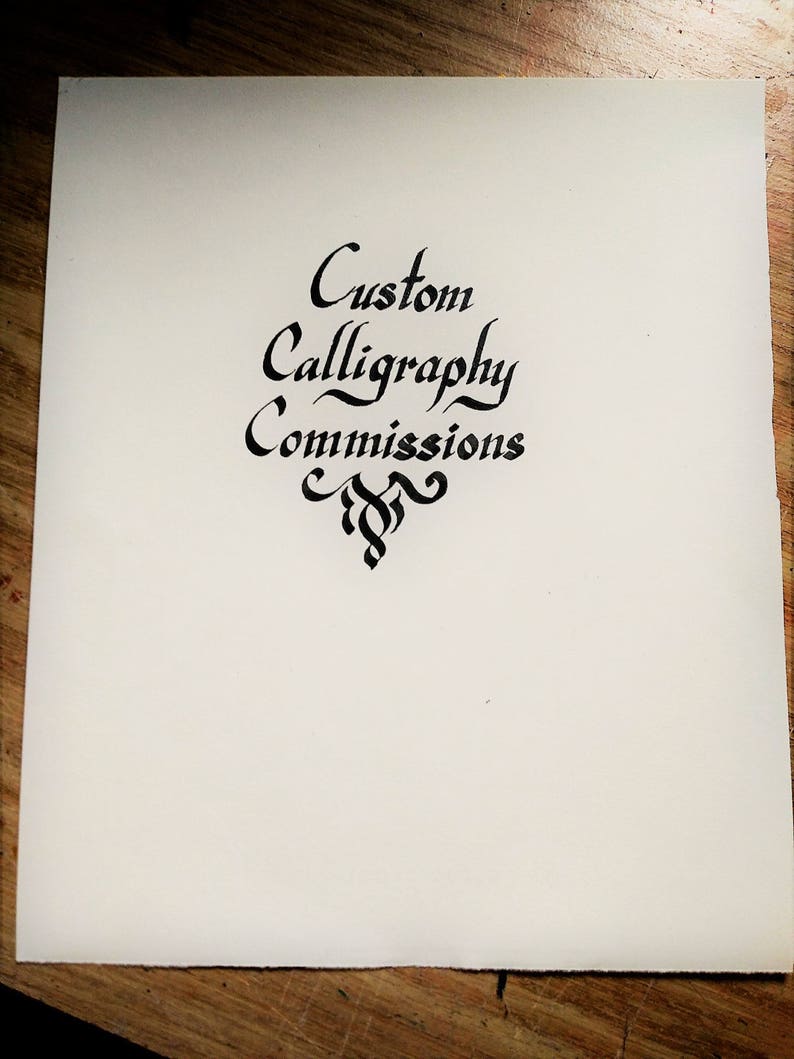 Custom
Calligraphy
Commissions